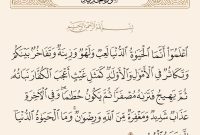 بِسْمِ ٱللَّهِ ٱلرَّحْمَٰنِ ٱلرَّحِيمِ
ٱعْلَمُوٓا۟ أَنَّمَا ٱلْحَيَوٰةُ ٱلدُّنْيَا لَعِبٌ وَلَهْوٌ وَزِينَةٌ وَتَفَاخُرٌۢ بَيْنَكُمْ
وَتَكَاثُرٌ فِى ٱلْأَمْوَٰلِ وَٱلْأَوْلَٰدِ كَمَثَلِ غَيْثٍ أَعْجَبَ ٱلْكُفَّارَ نَبَاتُهُۥ
ثُمَّ يَهِيجُ فَتَرَىٰهُ مُصْفَرًّا ثُمَّ يَكُونُ حُطَٰمًا وَفِى ٱلْءَاخِرَةِ
عَذَابٌ شَدِيدٌ وَمَغْفِرَةٌ مِّنَ ٱللَّهِ وَرِضْوَٰنٌ وَمَا ٱلْحَيَوٰةُ ٱلدُّنْيَآ